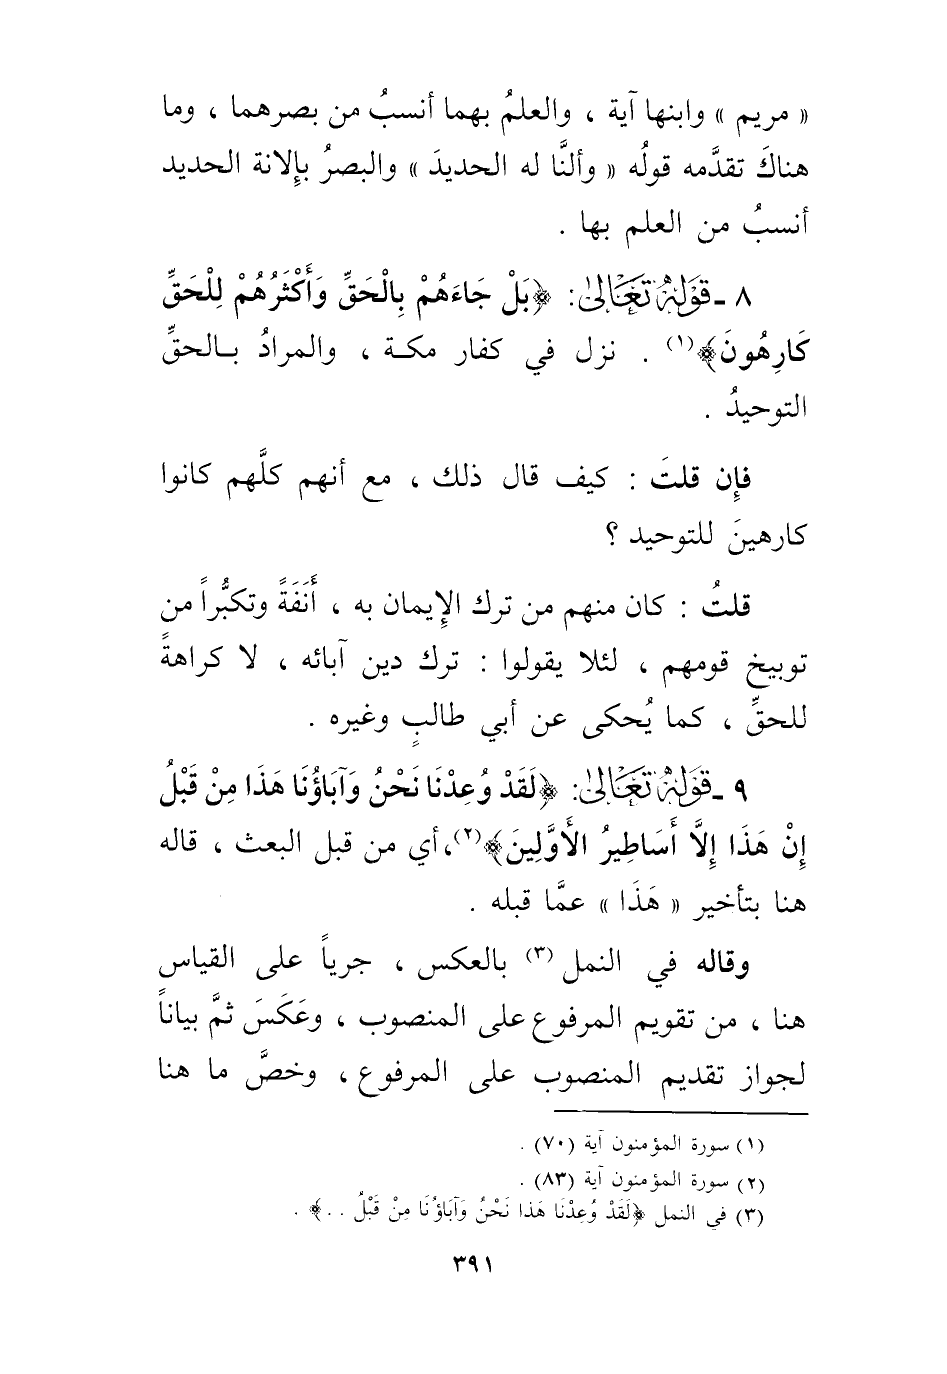 « مريم » وابنها آية ، والعلمُ بهما أنسبُ من بصرهما ، وما
هناكَ تقدَّمه قولُه « وألنَّا له الحديدَ » والبصرُ بإِلانة الحديد
أنسبُ من العلم بها .
٨ ـ قَوْلُهُ تَعَالَىٰ: ﴿بَلْ جَاءَهُمْ بِالْحَقِّ وَأَكْثَرُهُمْ لِلْحَقِّ
كَارِهُونَ﴾(١) . نزل في كفار مكـة ، والمرادُ بـالحقِّ
التوحيدُ .
فإِن قلتَ : كيف قال ذلك ، مع أنهم كلَّهم كانوا
كارهينَ للتوحيد ؟
قلتُ : كان منهم من ترك الإِيمان به ، أَنَفَةً وتكبُّراً من
توبيخ قومهم ، لئلا يقولوا : ترك دين آبائه ، لا كراهةً
للحقِّ ، كما يُحكى عن أبي طالبٍ وغيره .
٩ ـ قَوْلُهُ تَعَالَىٰ: ﴿لَقَدْ وُعِدْنَا نَحْنُ وَآبَاؤُنَا هَذَا مِنْ قَبْلُ
إِنْ هَذَا إِلَّا أَسَاطِيرُ الأَوَّلِينَ﴾(٢)، أي من قبل البعث ، قاله
هنا بتأخير « هَذَا » عمَّا قبله .
وقاله في النمل(٣) بالعكس ، جرياً على القياس
هنا ، من تقويم المرفوع على المنصوب ، وعَكَسَ ثمَّ بياناً
لجواز تقديم المنصوب على المرفوع ، وخصَّ ما هنا
(١) سورة المؤمنون آية (٧٠) .
(٢) سورة المؤمنون آية (٨٣) .
(٣) في النمل ﴿لَقَدْ وُعِدْنَا هَذا نَحْنُ وَآبَاؤُنَا مِنْ قَبْلُ . .﴾ .
٣٩١